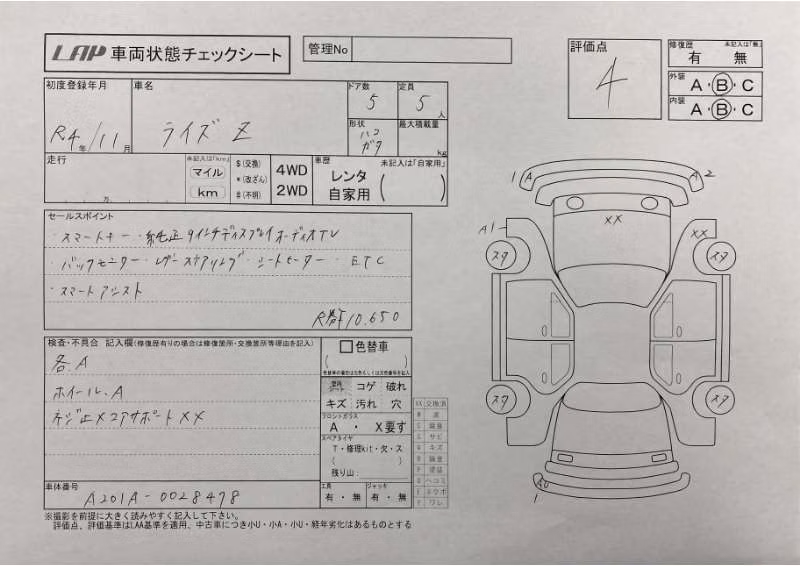 LAP 車両状態チェックシート
管理No
評価点
4
修復歴 未記入は「無」
有 無
外装 A・B・C
内装 A・B・C
初度登録年月
R4年/11月
車名
ライズ Z
ドア数
5
定員
5人
形状
ハコ
ガタ
最大積載量
kg
走行
万
未記入は「km」
マイル
km
$(交換)
*(改ざん)
#(不明)
4WD
2WD
車歴 未記入は「自家用」
レンタ
自家用
セールスポイント
・スマートキー・純正9インチディスプレイオーディオTV
・バックモニター・レザーステアリング・シートヒーター・ETC
・スマートアシスト
R券¥10.650
検査・不具合 記入欄(修復歴有りの場合は修復箇所・交換箇所等理由を記入)
各.A
ホイール.A
ネジ止メコアサポートXX
色替車
コゲ 破れ
キズ 汚れ 穴
フロントガラス
A ・ X要す
スペアタイヤ
T・修理kit・欠・ス
残り山:
工具
有・無
ジャッキ
有・無
車体番号
A201A-0028478
XX 交換済
サビ
キズ
塗装
ヘコミ
ワレ
1 A
A 2
XX
A1
XX
スタ
スタ
スタ
スタ
1
※撮影を前提に大きく読みやすく記入して下さい。
評価点、評価基準はLAA基準を適用、中古車につき小U・小A・小U・経年劣化はあるものとする